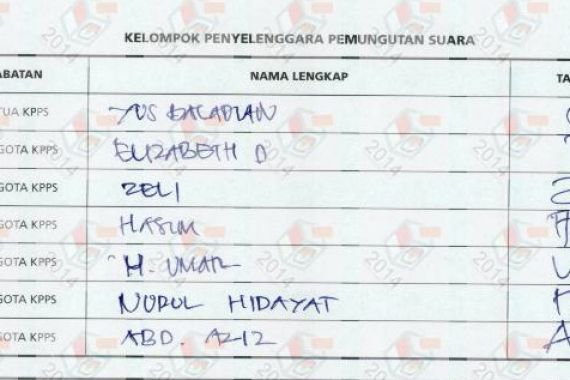 KELOMPOK PENYELENGGARA PEMUNGUTAN SUARA
ABATAN NAMA LENGKAP TA
TUA KPPS YUS
GOTA KPPS ELIZABETH D
GOTA KPPS ZELI
GOTA KPPS HASIM
GOTA KPPS H. UMAR
GOTA KPPS NURUL HIDAYAT
GOTA KPPS ABD. AZIZ